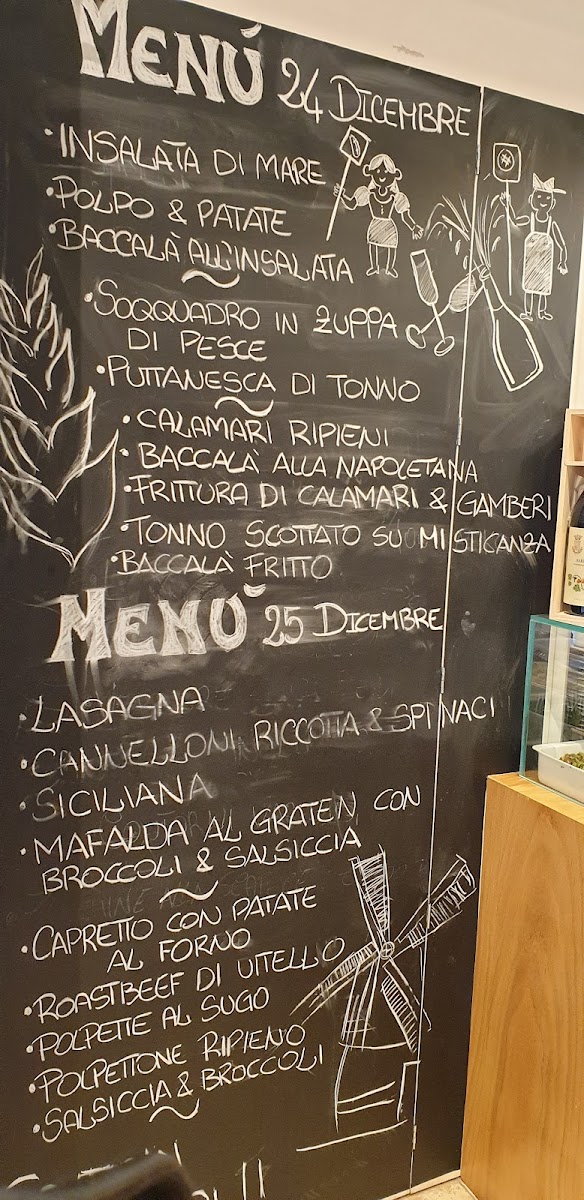 MENÚ 24 DICEMBRE
•INSALATA DI MARE
•POLPO & PATATE
•BACCALÀ ALL'INSALATA
•SOQQUADRO IN ZUPPA
DI PESCE
•PUTTANESCA DI TONNO
•CALAMARI RIPIENI
•BACCALÀ ALLA NAPOLETANA
•FRITTURA DI CALAMARI & GAMBERI
•TONNO SCOTTATO SU MISTICANZA
•BACCALÀ FRITTO
MENÙ 25 DICEMBRE
•LASAGNA
•CANNELLONI RICCOTTA & SPINACI
•SICILIANA
•MAFALDA AL GRATEN CON
BROCCOLI & SALSICCIA
•CAPRETTO CON PATATE
AL FORNO
•ROASTBEEF DI VITELLO
•POLPETTE AL SUGO
•POLPETTONE RIPIENO
•SALSICCIA & BROCCOLI